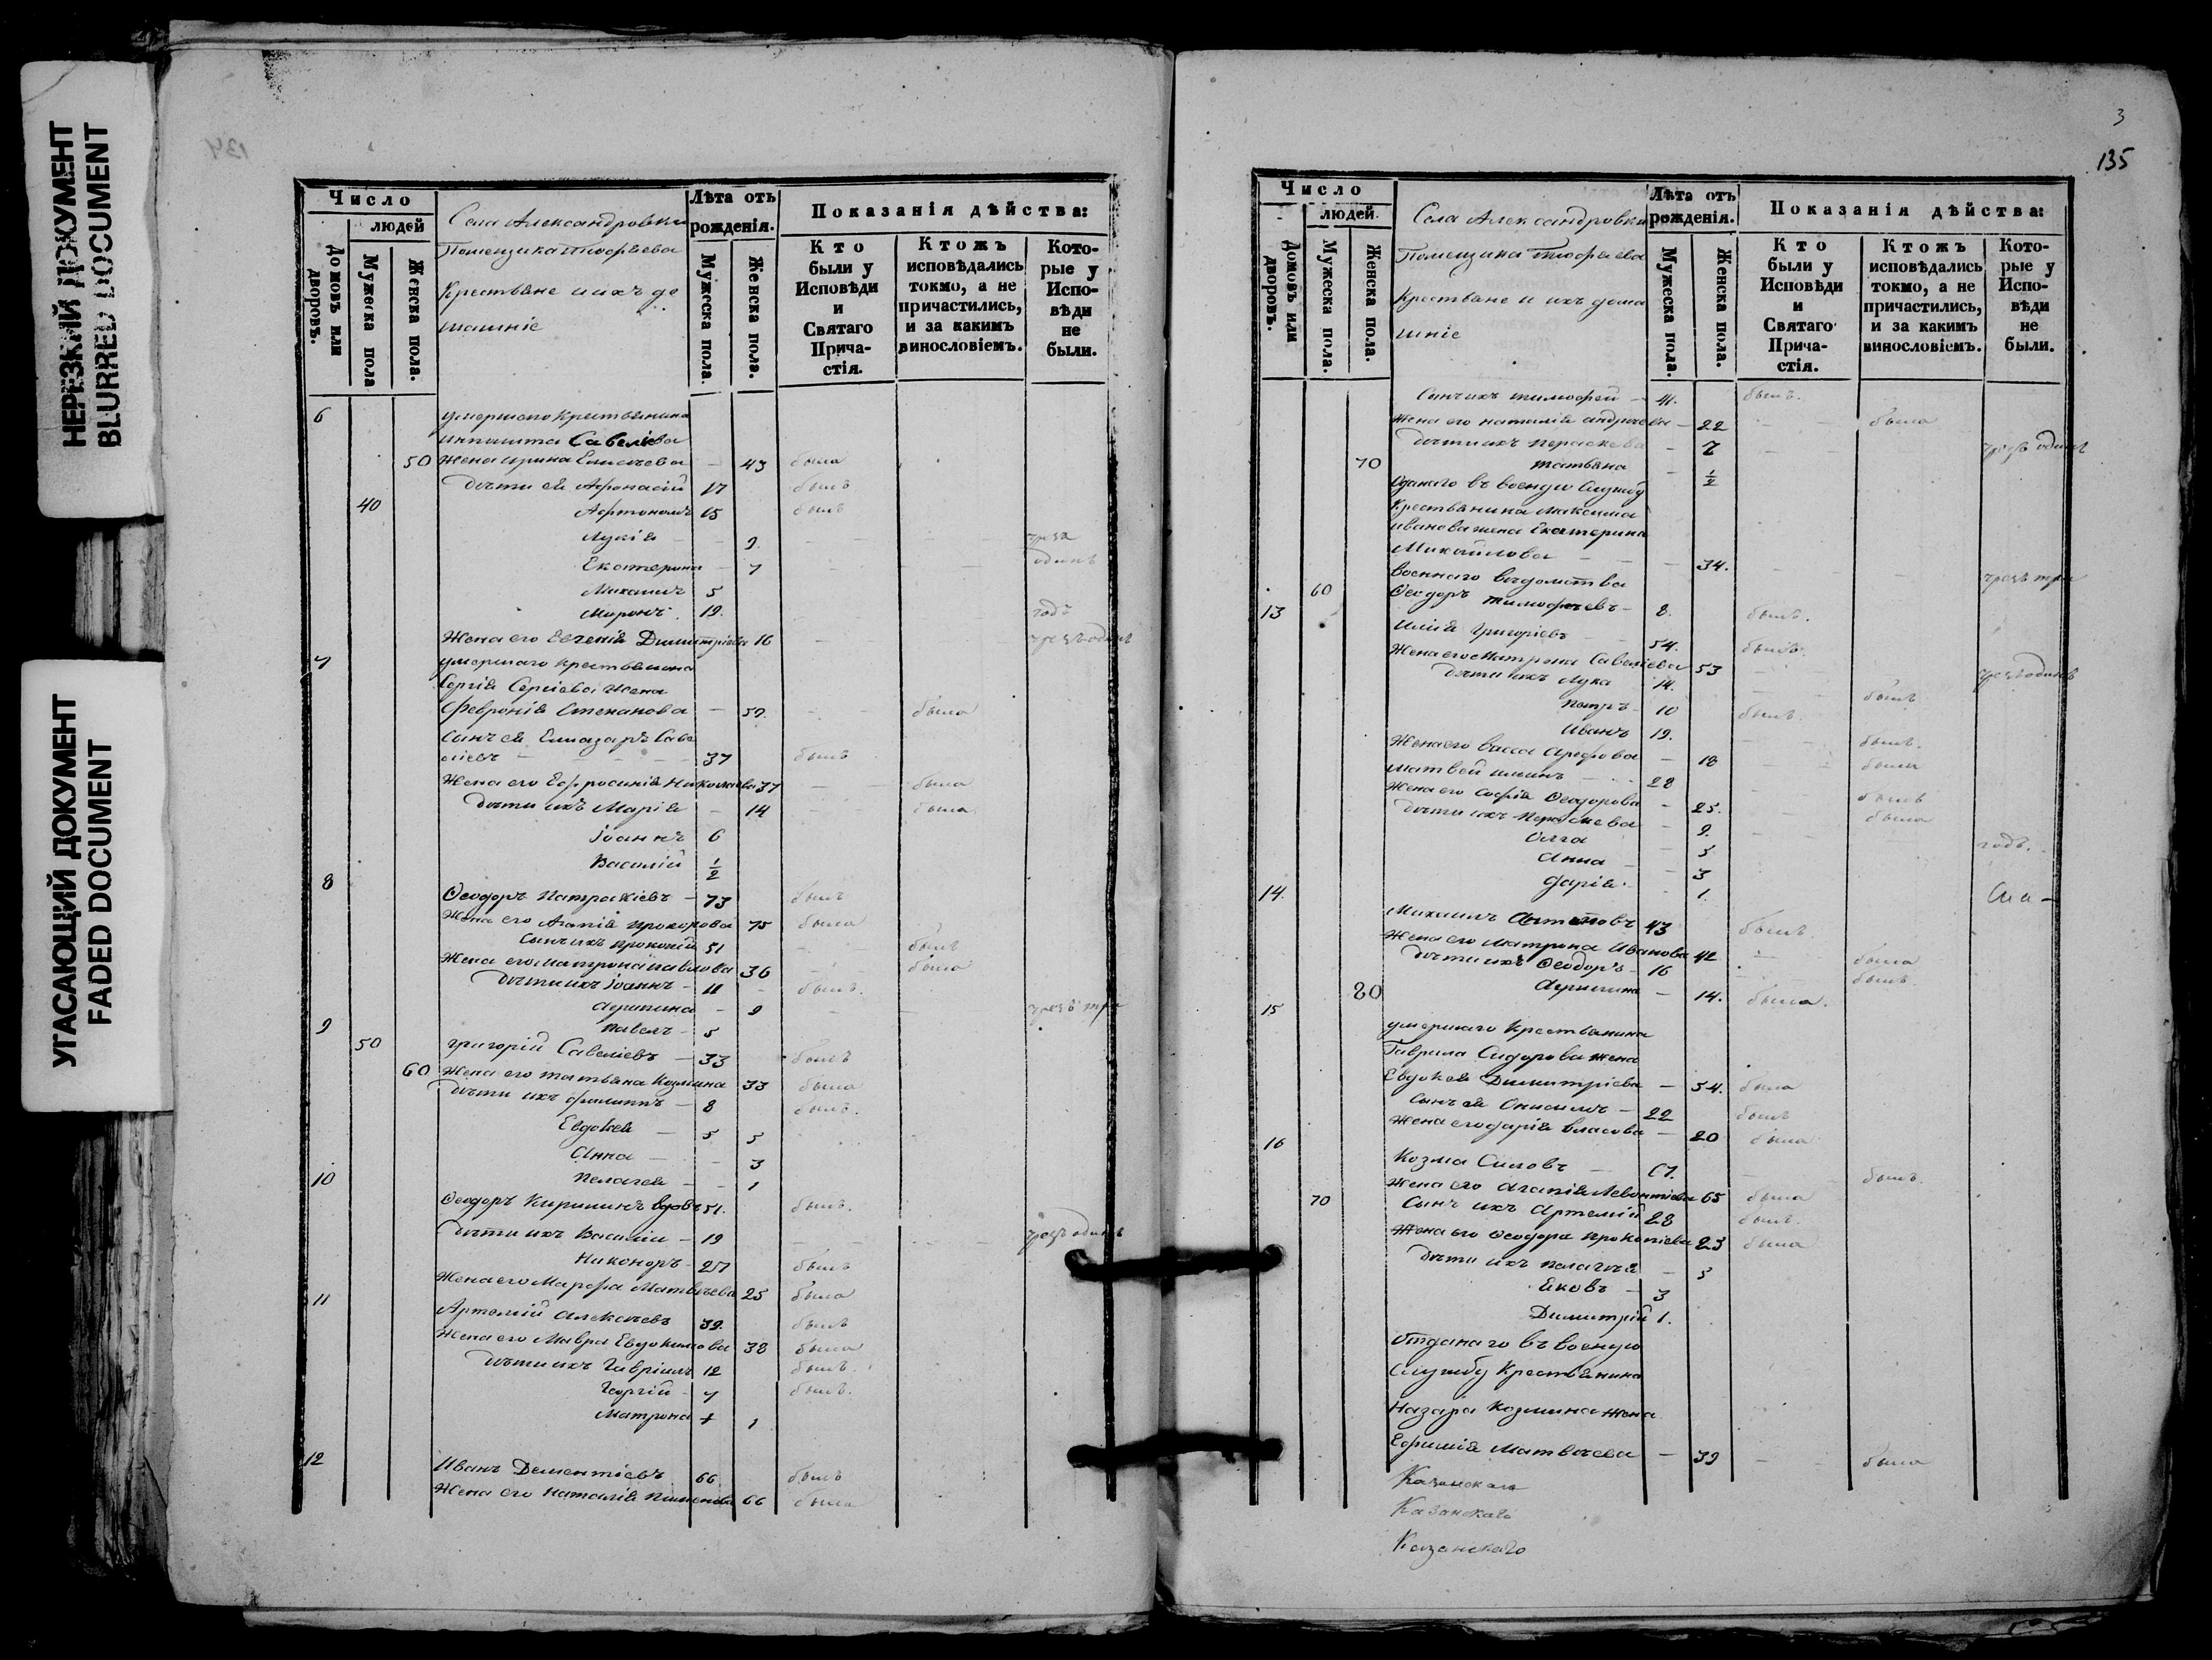 НЕРЕЗКИЙ ДОКУМЕНТ
BLURRED DOCUMENT
УГАСАЮЩИЙ ДОКУМЕНТ
FADED DOCUMENT
134
Число
людей
Домовъ или дворовъ.
Мужеска пола
Женска пола.
Села Александровки
Помещика
Крестьяне и ихъ до
машніе
Лѣта отъ рожденія.
Мужеска пола.
Женска пола.
Показанія дѣйства:
Кто были у Исповѣди и Святаго Причастія.
Ктожъ исповѣдались токмо, а не причастились, и за какимъ винословіемъ.
Которые у Исповѣди не были.
6 умершаго Крестьянина
Савеліева
50 Жена Ирина Елисѣева — 43 была
дѣти ея Афонасій 17 былъ
40 Артономъ 15 былъ
Лукія — 9 чрезъ
Екатерина — 7 одинъ
Михаилъ 5
Миронъ 19. годъ
Жена его Евгенія Димитріева 16 чрезъ одинъ
7 умершаго крестьянина
Сергія Сергіева жена
Февронія Степанова — 57. была
Сынъ ея Елиазаръ Саве
ліевъ — 37 былъ
Жена его Ефросинія Николаева 37 была
дѣти ихъ Марія — 14 была
Іоаннъ 6
Василій 1/2
8 Ѳеодоръ Патракіевъ — 73 былъ
Жена его Агапія Прохорова 75 была
Сынъ ихъ Прокопій 51 былъ
Жена его Матрона Павлова 36 была
дѣти ихъ Іоаннъ — 11 былъ.
Агрипина — 9 чрезъ три
Павелъ — 5
9 50 Григорій Савеліевъ — 33 былъ
60 Жена его Татьяна Козмина 33 была
дѣти ихъ Филиппъ — 8 былъ.
Евдокія — 5 5
Анна — 3
Пелагея — 1
10 Ѳеодоръ Кирилинъ вдовъ 51. былъ.
дѣти ихъ Василій — 19 чрезъ одинъ
Никоноръ — 27 былъ
Жена его Марфа Матвѣева 25 была
11 Артемій Алексѣевъ 39. былъ
Жена его Мавра Евдокимова 38 была
дѣти ихъ Гавріилъ 12 былъ.
Георгій — 7 былъ.
Матрона 1
12 Иванъ Дементіевъ 66 былъ
Жена его Наталія Пименова 66 была
3
135
Число
людей.
Домовъ или дворовъ.
Мужеска пола.
Женска пола.
Села Александровки
Помещика
Крестьяне и ихъ дома
шніе
Лѣта отъ рожденія.
Мужеска пола.
Женска пола.
Показанія дѣйства:
Кто были у Исповѣди и Святаго Причастія.
Ктожъ исповѣдались токмо, а не причастились, и за какимъ винословіемъ.
Которые у Исповѣди не были.
Сынъ ихъ Тимофей — 41. былъ.
Жена его Наталія Андреева — 22 была
дѣти ихъ Параскева — 7 чрезъ одинъ
70 Татьяна — 1/2
Отданаго въ военную службу
Крестьянина Максима
Иванова жена Екатерина
Михайлова — 34. чрезъ три
военнаго вѣдомства
60 Ѳеодоръ Тимофѣевъ — 8. былъ.
13 Илія Григоріевъ — 54. былъ.
Жена его Матрона Савеліева 53 чрезъ одинъ
дѣти ихъ Лука 14. былъ
Петръ 10 былъ.
Иванъ 19. былъ.
Жена его Васса Арефова — 18 была
Матвей Илинъ — 28 былъ
Жена его Софія Ѳеодорова — 25. была
дѣти ихъ Параскева — 9. годъ.
Олга — 5
Анна — 3
Дарія — 1.
14. Михаилъ Антоновъ 43 былъ.
Жена его Матрона Иванова 42 была
дѣти ихъ Ѳеодоръ — 16 былъ.
80 Агрипина — 14. была.
15 умершаго Крестьянина
Гаврила Сидорова жена
Евдокія Димитріева — 54. была
Сынъ ея Онисимъ — 22 былъ
Жена его Дарія Власова — 20 была
16 Козма Силовъ — 67. былъ.
Жена его Агапія Левонтіева 65 была
70 Сынъ ихъ Артемій 28 былъ.
Жена его Ѳеодора Прокопіева 23 была
дѣти ихъ Пелагѣя — 5
Яковъ — 3
Димитрій 1.
Отданаго въ военую
Службу Крестьянина
Назара Козмина жена
Ефимія Матвѣева — 39 была
Казанскаго
Казанскаго
Казанскаго